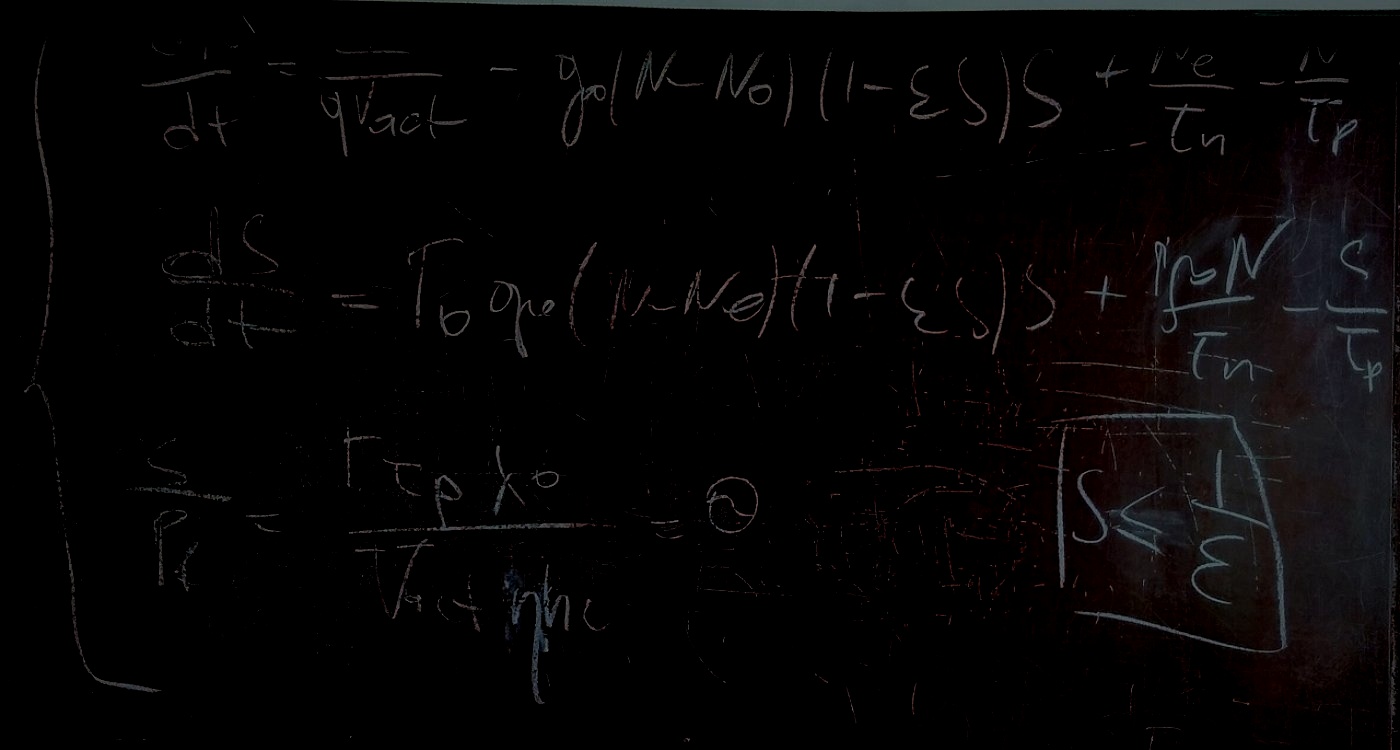 dN/dt = I/(qVact) - g₀(N - N₀)(1 - εS)S + Ne/τn - N/τp
dS/dt = Γ₀ g₀(N - N₀)(1 - εS)S + Γβ₀N/τn - S/τp
S/Pf = Γτp λ₀/(Vact ηhc) = ϑ
S ≤ 1/ε